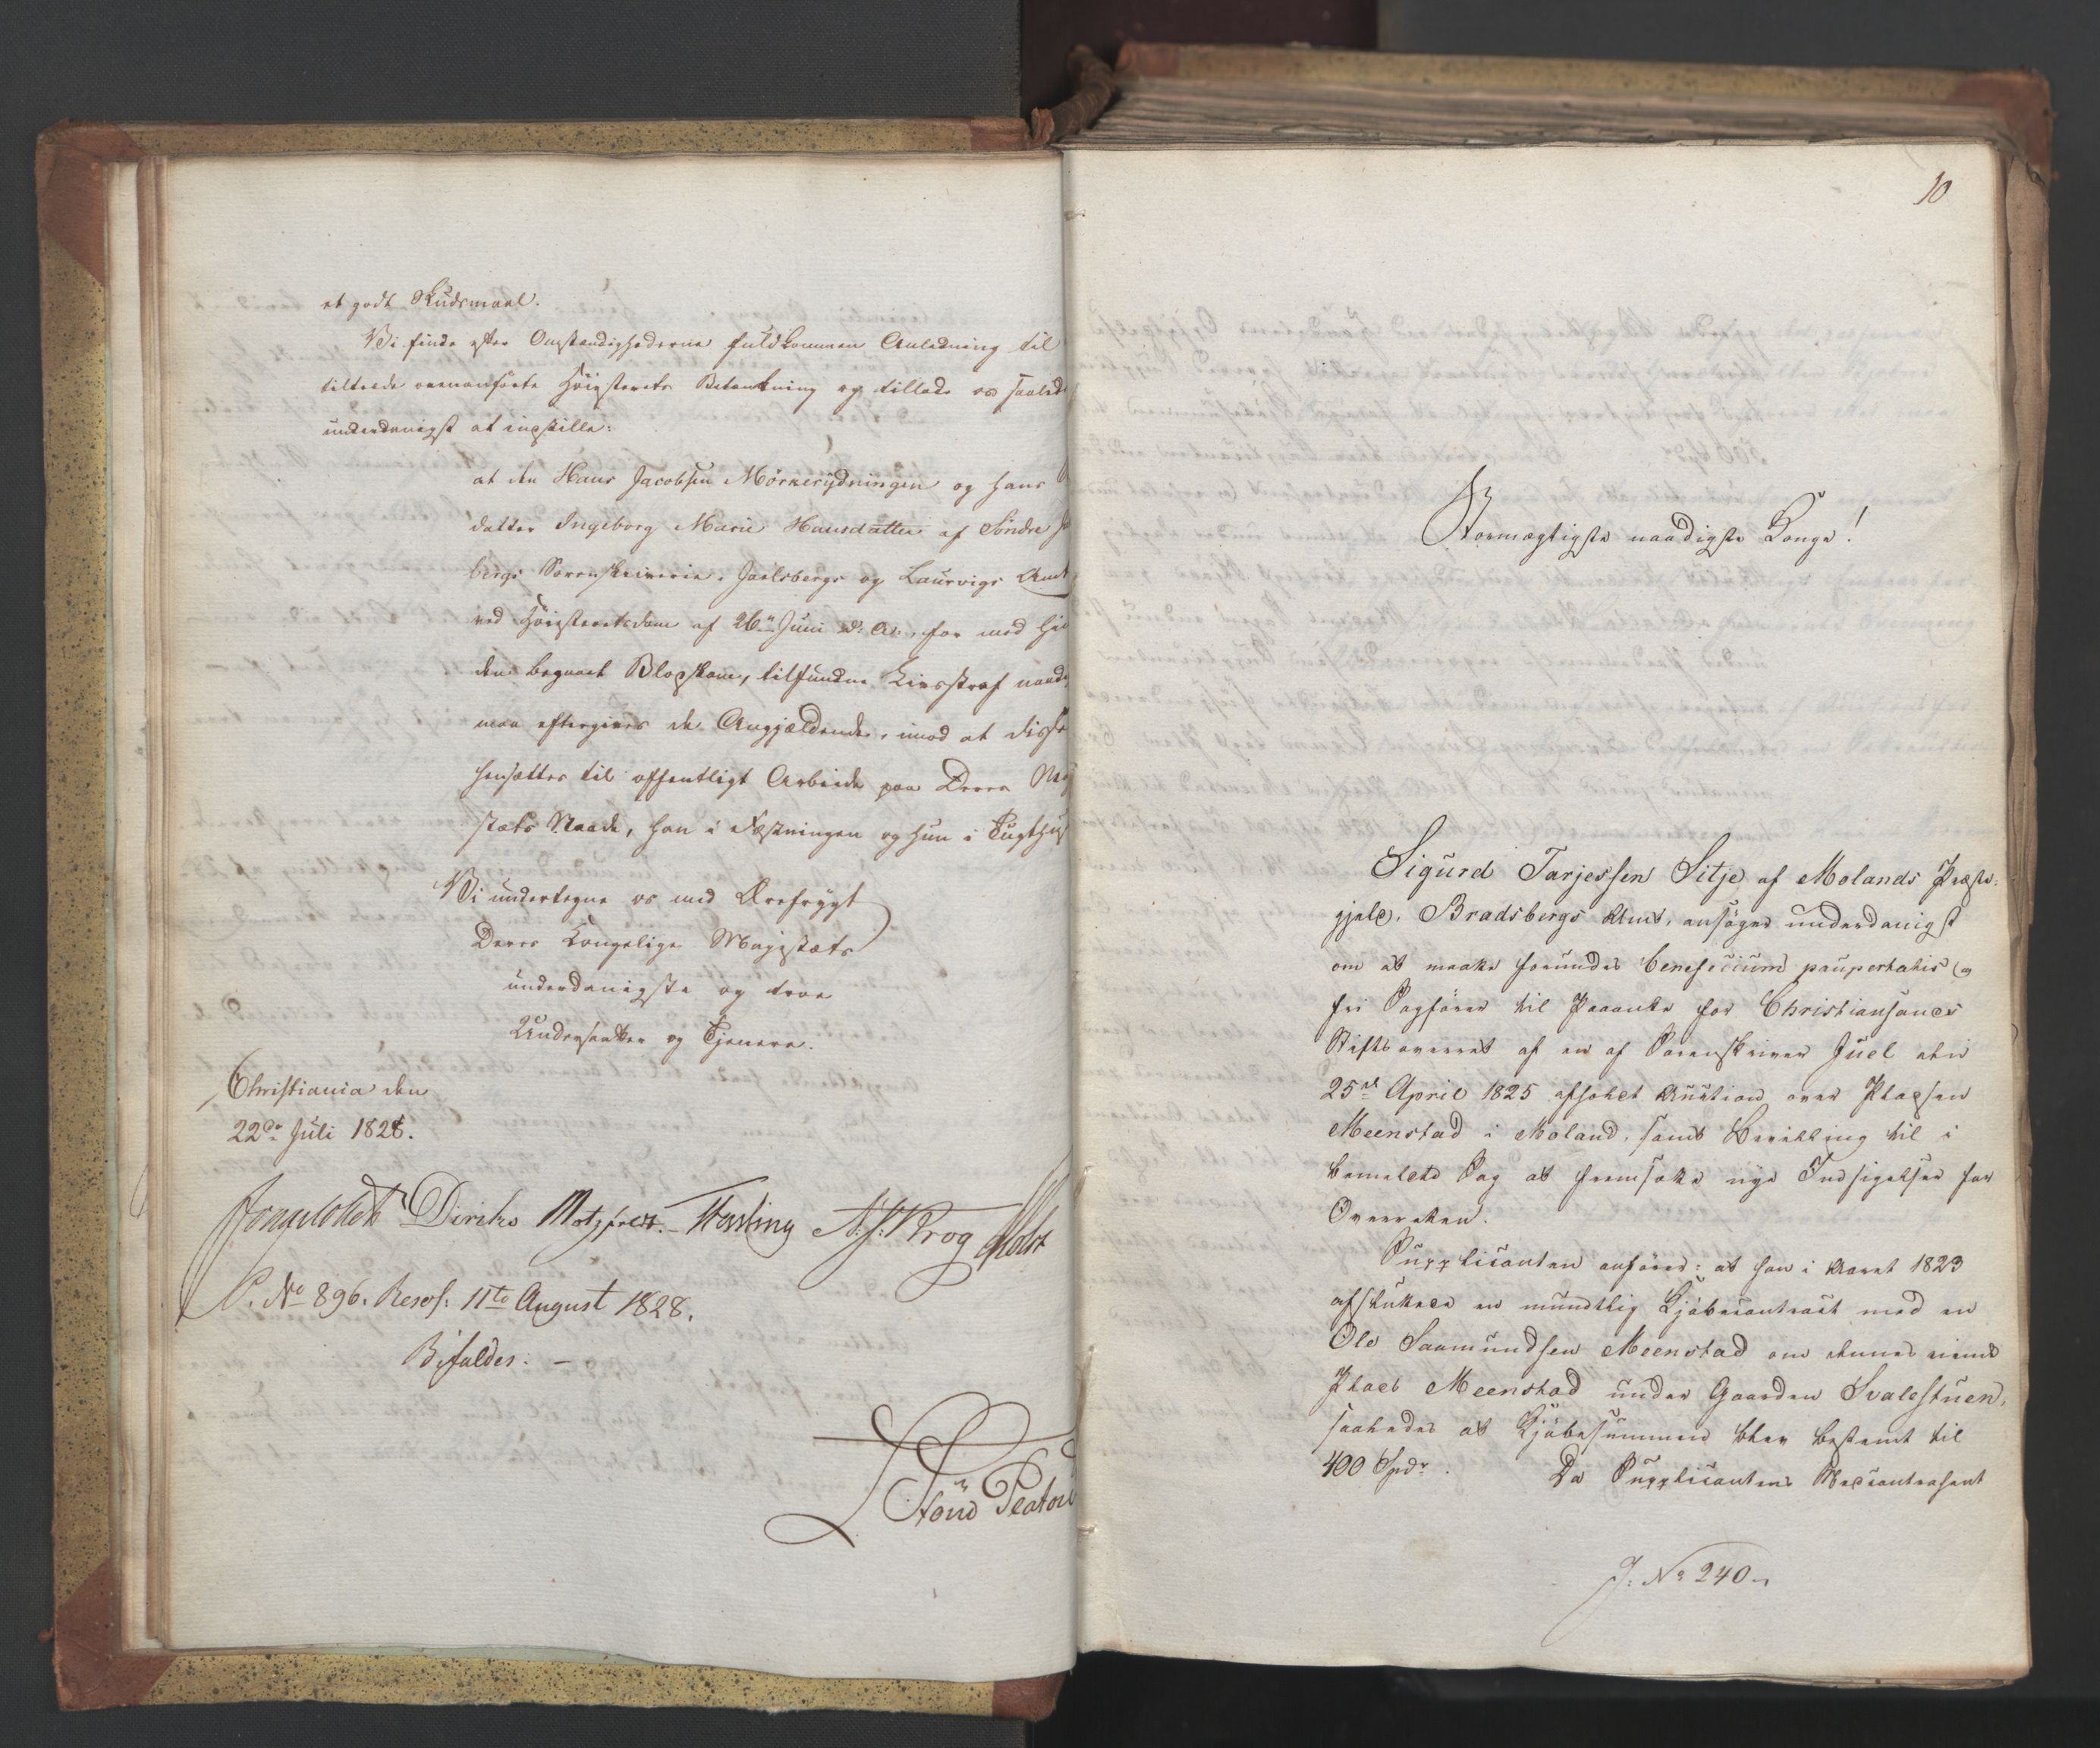 et godt Skudsmaal.
Vi finde efter Omstændighederne fuldkommen Anledning til
tiltræde ovenanførte Høiesterets Betænkning og tillade os saaled
underdanigst at indstille:
at den Hans Jacobsen Mörkerydningen og hans
datter Ingeborg Marie Hansdatter af Söndre
bergs Sorenskriverie, Jarlsbergs og Laurvigs Amt
ved Høiesteretsdom af 26de Juni d: A:, for med hin
den begaaet Blodskam, tilfundne Livsstraf naad
maa eftergives de Angjældende, imod at disse
hensættes til offentligt Arbeide paa Deres Maj
stæts Naade, han i Fæstningen og hun i Tugthus
Vi undertegne os med Ærefrygt
Deres Kongelige Majestæts
underdanigste og troe
Undersaatter og Tjenere.
Christiania den
22de Juli 1828.
Jonas Collett Diriks Motzfeldt. Fasting A. S. Krog Holst
P. No 896. Resol: 11te August 1828.
Bifaldes. –
10
Stormægtigste naadigste Konge!
Sigurd Tarjessen Sitje af Molands Præste-
gjeld, Bradsbergs Amt, ansøger underdanigst
om at maatte forundes beneficium paupertatis og
fri Sagfører til Paaanke for Christiansands
Stiftsoverret af en af Sorenskriver Juel den
25de April 1825 afholdt Auction over Pladsen
Meenstad i Moland, samt Bevilling til i
bemeldte Sag at fremsætte nye Indsigelser for
Overretten.
Supplicanten anfører: at han i Aaret 1823
afsluttede en mundtlig Kjøbecontract med en
Ole Saamundsen Meenstad om dennes eiende
Plads Meenstad under Gaarden Svalestuen,
saaledes at Kjøbesummen blev bestemt til
400 Spdr. Da Supplicantens Medcontrahent
J: No 240.